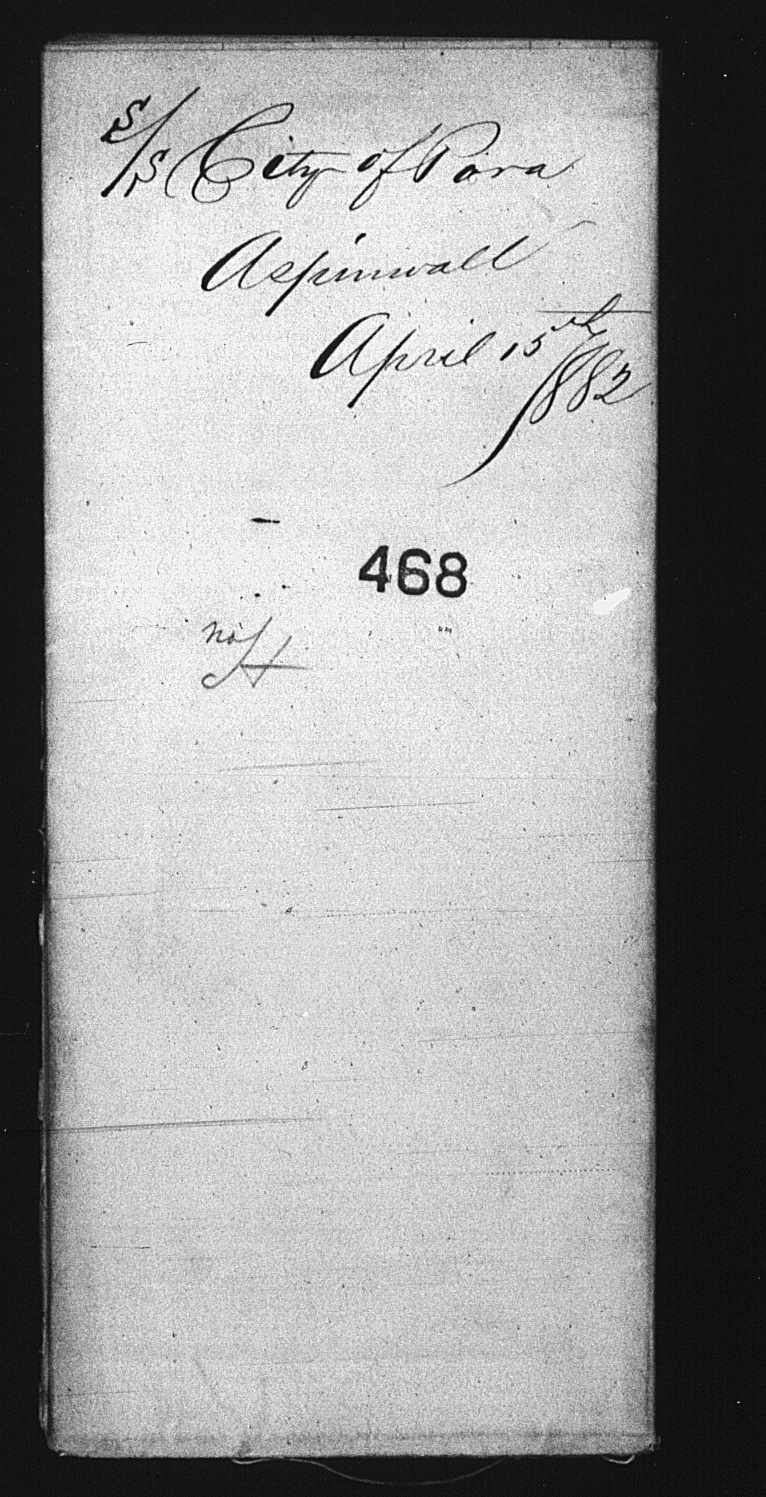 S/S City of Para
Aspinwall
April 15th
1882
468